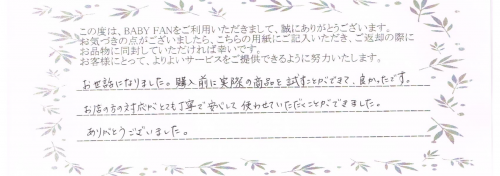 この度は、BABY FANをご利用いただきまして、誠にありがとうございます。
お気づきの点がございましたら、こちらの用紙にご記入いただき、ご返却の際に
お品物に同封していただければ幸いです。
お客様にとって、よりよいサービスをご提供できるように努力いたします。
お世話になりました。購入前に実際の商品を試すことができて、良かったです。
お店の方の対応がとても丁寧で安心して使わせていただくことができました。
ありがとうございました。